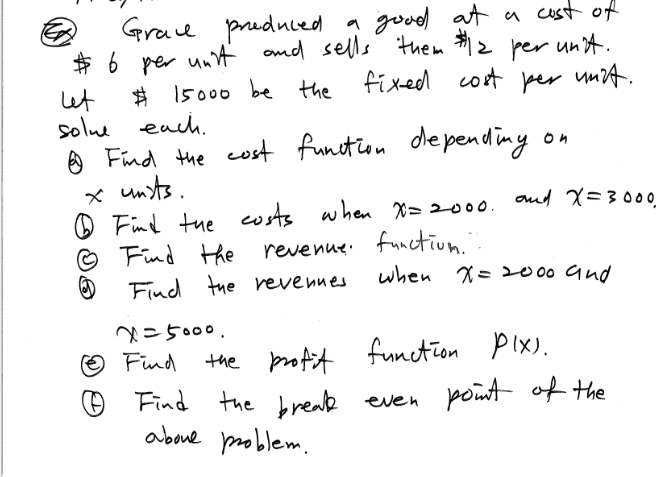 Ex Grace produced a good at a cost of
$ 6 per unit and sells them $12 per unit.
Let $ 15000 be the fixed cost per unit.
Solve each.
(a) Find the cost function depending on
x units.
(b) Find the costs when x = 2000. and x = 3000.
(c) Find the revenue function.
(d) Find the revenues when x = 2000 and
x = 5000.
(e) Find the profit function P(x).
(f) Find the break even point of the
above problem.